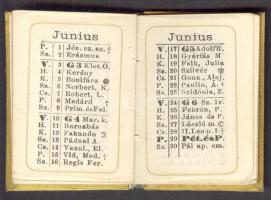 Junius
P. 1 Jáz. sz. sz.
Sz. 2 Erázmus
V. 3 G 3 Klot. O.
H. 4 Kerény
K. 5 Bonifácz
Sz. 6 Norbert, K.
Cs. 7 Robert, L.
P. 8 Medárd
Sz. 9 Prim és Fel.
V. 10 G 4 Mar. k.
H. 11 Barnabás
K. 12 Fakundo
Sz. 13 Páduai A.
Cs. 14 Vazul, El.
P. 15 Vid, Mod. †
Sz. 16 Regis Fer.
Junius
V. 17 G 5 Adolf R.
H. 18 Gyárfás M
K. 19 Falk, Julia
Sz. 20 Szilvér
Cs. 21 Gonz. Alaj.
P. 22 Paulin, A. †
Sz. 23 Szidónia, Z.
V. 24 G 6 Sz. Iv.
H. 25 Febrón, P.
K. 26 János és P.
Sz. 27 László m.
Cs. 28 II. Leo p. †
P. 29 Pét. és P.
Sz. 30 Pál ap. em.